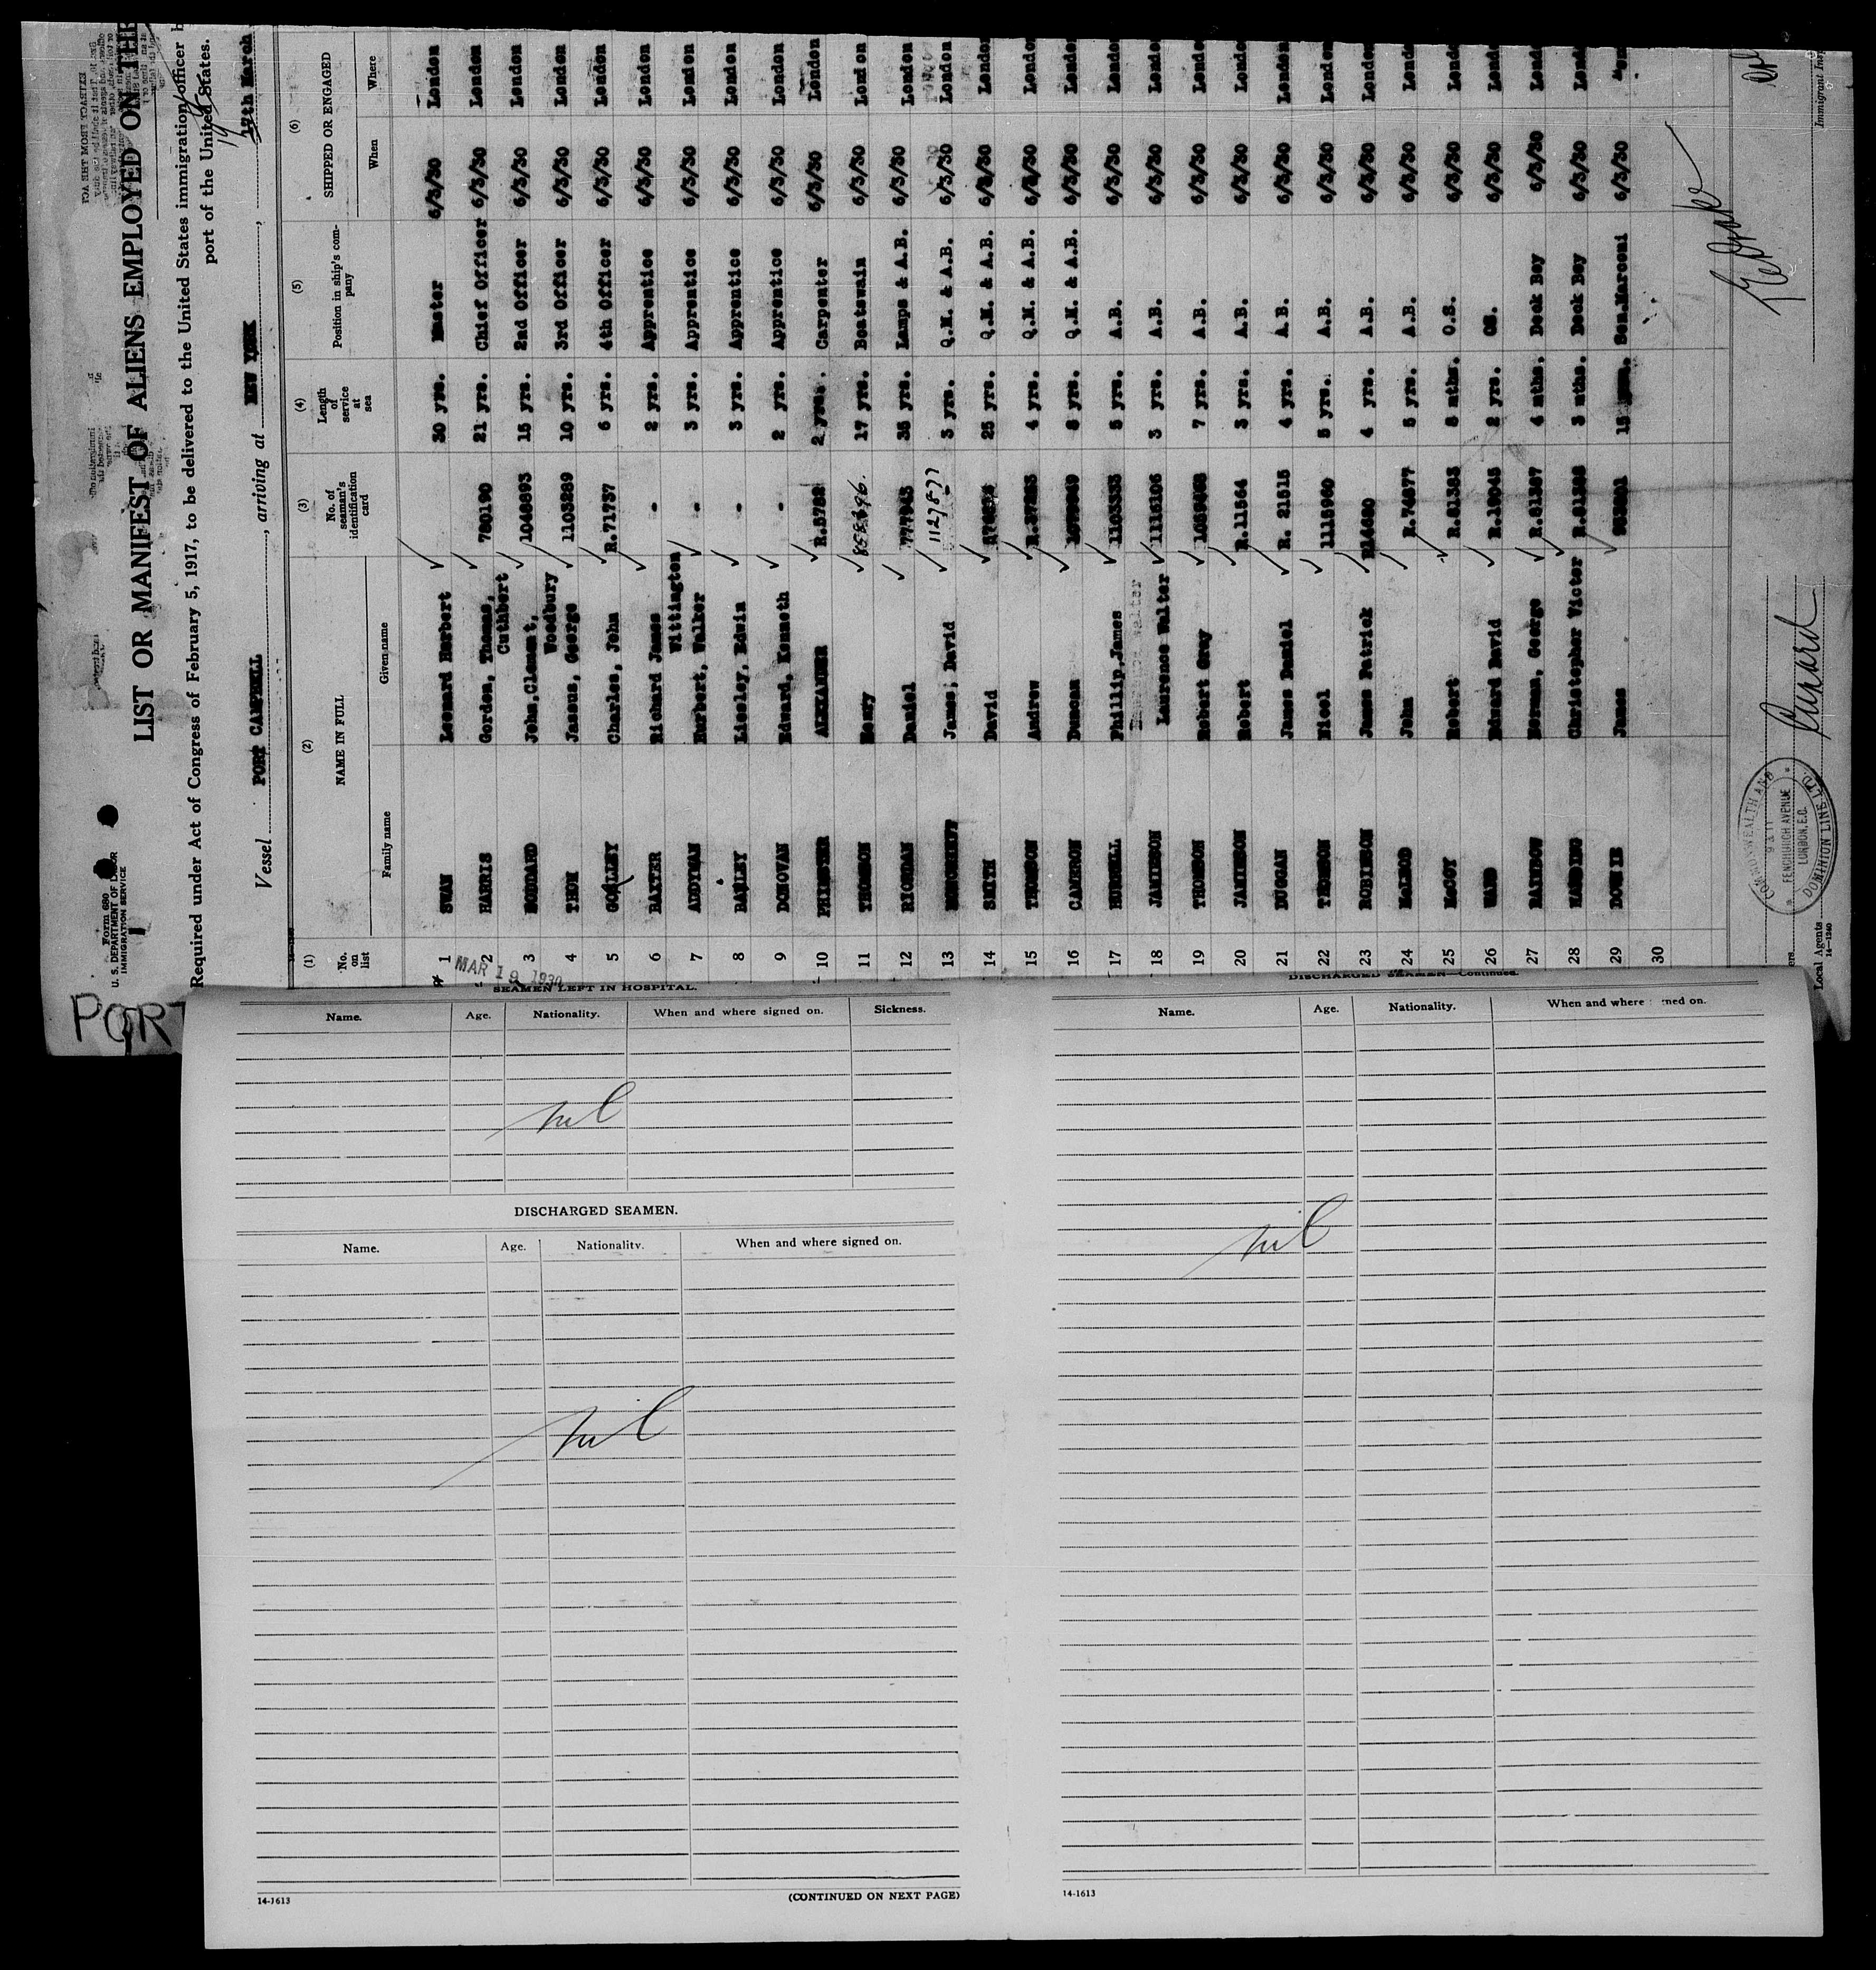 Form 680
U. S. DEPARTMENT OF LABOR
IMMIGRATION SERVICE
EXTRACT FROM THE ACT
LIST OR MANIFEST OF ALIENS EMPLOYED ON THE
Required under Act of Congress of February 5, 1917, to be delivered to the United States immigration officer
port of the United States.
Vessel PORT CAMPBELL, arriving at NEW YORK, 17th March
(1) (2) (3) (4) (5) (6)
No. on list NAME IN FULL No. of seaman's identification card Length of service at sea Position in ship's company SHIPPED OR ENGAGED
Family name Given name When Where
1 SWAN Leonard Herbert 30 yrs. Master 6/3/30 London
2 HARRIS Gordon, Thomas, Cuthbert 780190 21 yrs. Chief Officer 6/3/30 London
3 John, Clement, Woodbury 1048893 15 yrs. 2nd Officer 6/3/30 London
4 THOM Jassus, George 1103289 10 yrs. 3rd Officer 6/3/30 London
5 Charles, John R.71737 6 yrs. 4th Officer 6/3/30 London
6 BAXTER Richard James Wittington - 2 yrs. Apprentice 6/3/30 London
7 ADDYMAN Herbert, Walker - 3 yrs. Apprentice 6/3/30 London
8 Edwin - 3 yrs. Apprentice 6/3/30 London
9 DONOVAN Edward, Kenneth - 2 yrs. Apprentice 6/3/30 London
10 ALEXANDER 2 yrs. Carpenter 6/3/30 London
11 THOMSON Henry 17 yrs. Boatswain 6/3/30 London
12 RIORDAN Daniel 35 yrs. Lamps & A.B. 6/3/30 London
13 James, David 1127877 3 yrs. Q.M. & A.B. 6/3/30 London
14 SMITH David 25 yrs. Q.M. & A.B. 6/3/30 London
15 THOMSON Andrew 4 yrs. Q.M. & A.B. 6/3/30 London
16 CAMERON Duncan Q.M. & A.B. 6/3/30 London
17 Phillip, James 1103333 5 yrs. A.B. 6/3/30 London
18 JAMIESON Laurence Walter 1115106 3 yrs. A.B. 6/3/30 Londo
19 THOMSON Robert Gray 7 yrs. A.B. 6/3/30 Londo
20 JAMIESON Robert R.11564 3 yrs. A.B. 6/3/30 Londo
21 DUGGAN James Daniel R. 21515 4 yrs. A.B. 6/3/30 London
22 THOMSON Nicol 1115960 5 yrs. A.B. 6/3/30 London
23 ROBINSON James Patrick 4 yrs. A.B. 6/3/30 London
24 McLEOD John R.74677 5 yrs. A.B. 6/3/30 Londo
25 McCOY Robert R.81383 mths. O.S. 6/3/30 Londo
26 Edward David 2 yrs. OS. 6/3/30 Lond
27 RAINBOW Norman, George R.81367 4 mths. Deck Boy 6/3/30 Lond
28 HARDING Christopher Victor 3 mths. Deck Boy 6/3/30 Lond
29 DOWNIE James Sen.Marconi 6/3/30
30
MAR 19 1930
COMMONWEALTH AND DOMINION LINE LTD.
9 & 11
FENCHURCH AVENUE
LONDON, E.C.
Local Agents Cunard
Immigrant Ins
14—1240
PORT
SEAMEN LEFT IN HOSPITAL.
Name. Age. Nationality. When and where signed on. Sickness.
nil
DISCHARGED SEAMEN.
Name. Age. Nationality. When and where signed on.
nil
14-1613
(CONTINUED ON NEXT PAGE)
DISCHARGED SEAMEN—Continued.
Name. Age. Nationality. When and where signed on.
nil
14-1613